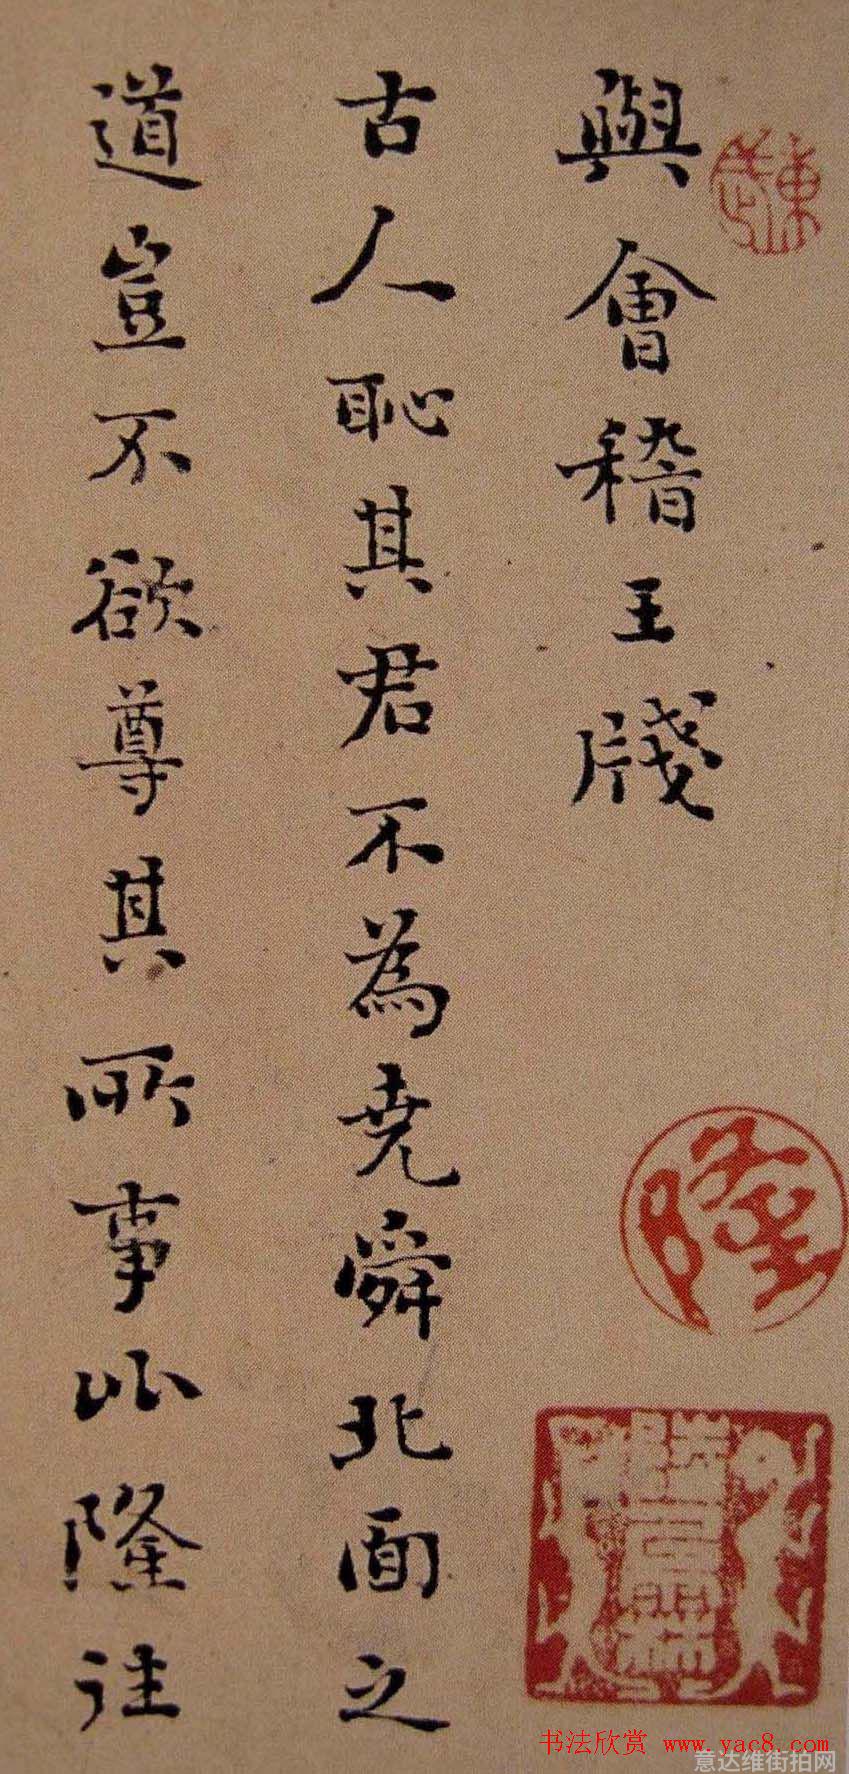 與會稽王牋
古人恥其君不為尭舜北面之
道豈不欲尊其所事比隆往
隆
书法欣赏 www.yac8.com
意达维街拍网